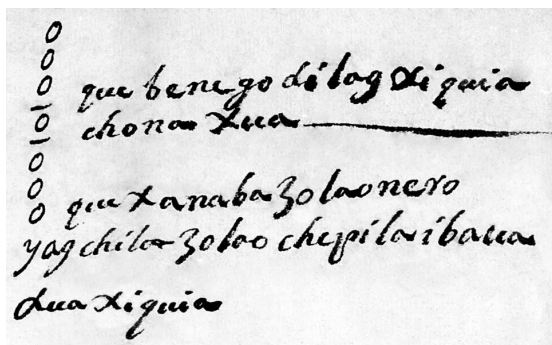 que benego dilag xiquia
chona xua
que xanaba zolaonero
yagchila zolao chepilaibaua
xua xiquia